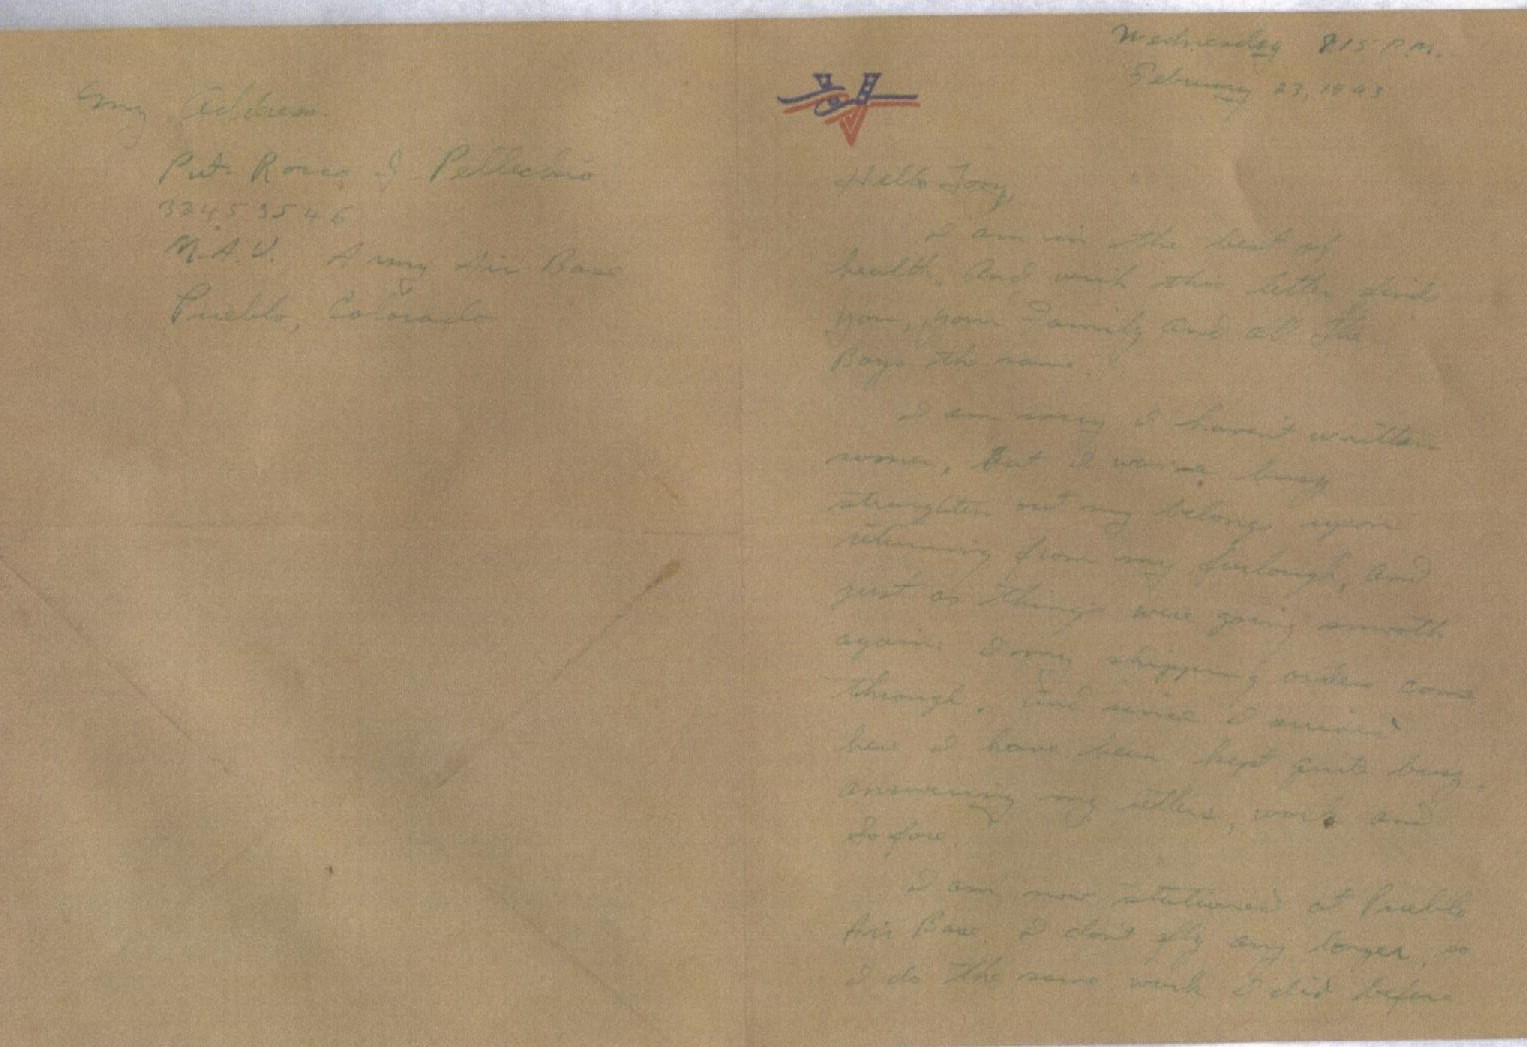 My Address.
Pvt. Rocco J Pellechio
32459546
M.A.U. Army Air Base
Pueblo, Colorado
Wednesday 8:15 P.M.
February 23, 1943
Hello Tony,
I am in the best of
health. And wish this letter finds
you, your Family and all the
Boys the same.
I am sorry I haven't written
sooner, But I was busy
straighten out my belongs upon
returning from my furlough, and
just as things were going smooth
again my shipping orders come
through. And since I arrived
here I have been kept quite busy,
answering my letters, work and
So fore.
I am now stationed at Pueblo
Air Base. I don't fly any longer, so
I do the same work I did before